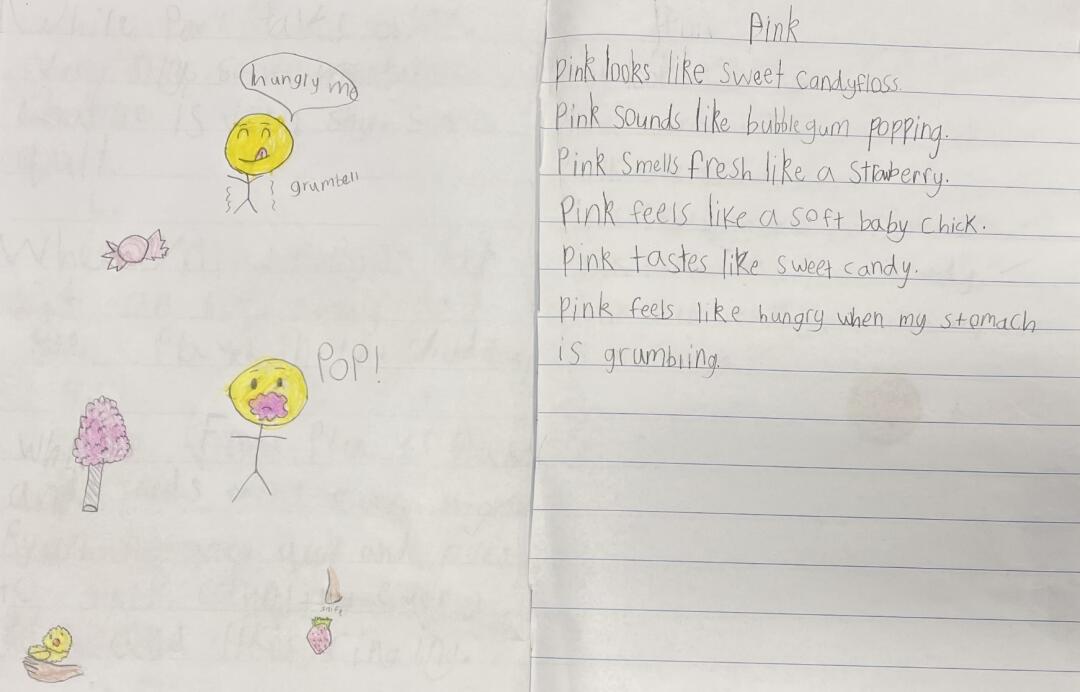 hungry me
grumbell
POP!
sniff
Pink
Pink looks like sweet candyfloss.
Pink sounds like bubblegum popping.
Pink smells fresh like a strawberry.
Pink feels like a soft baby chick.
Pink tastes like sweet candy.
Pink feels like hungry when my stomach
is grumbling.